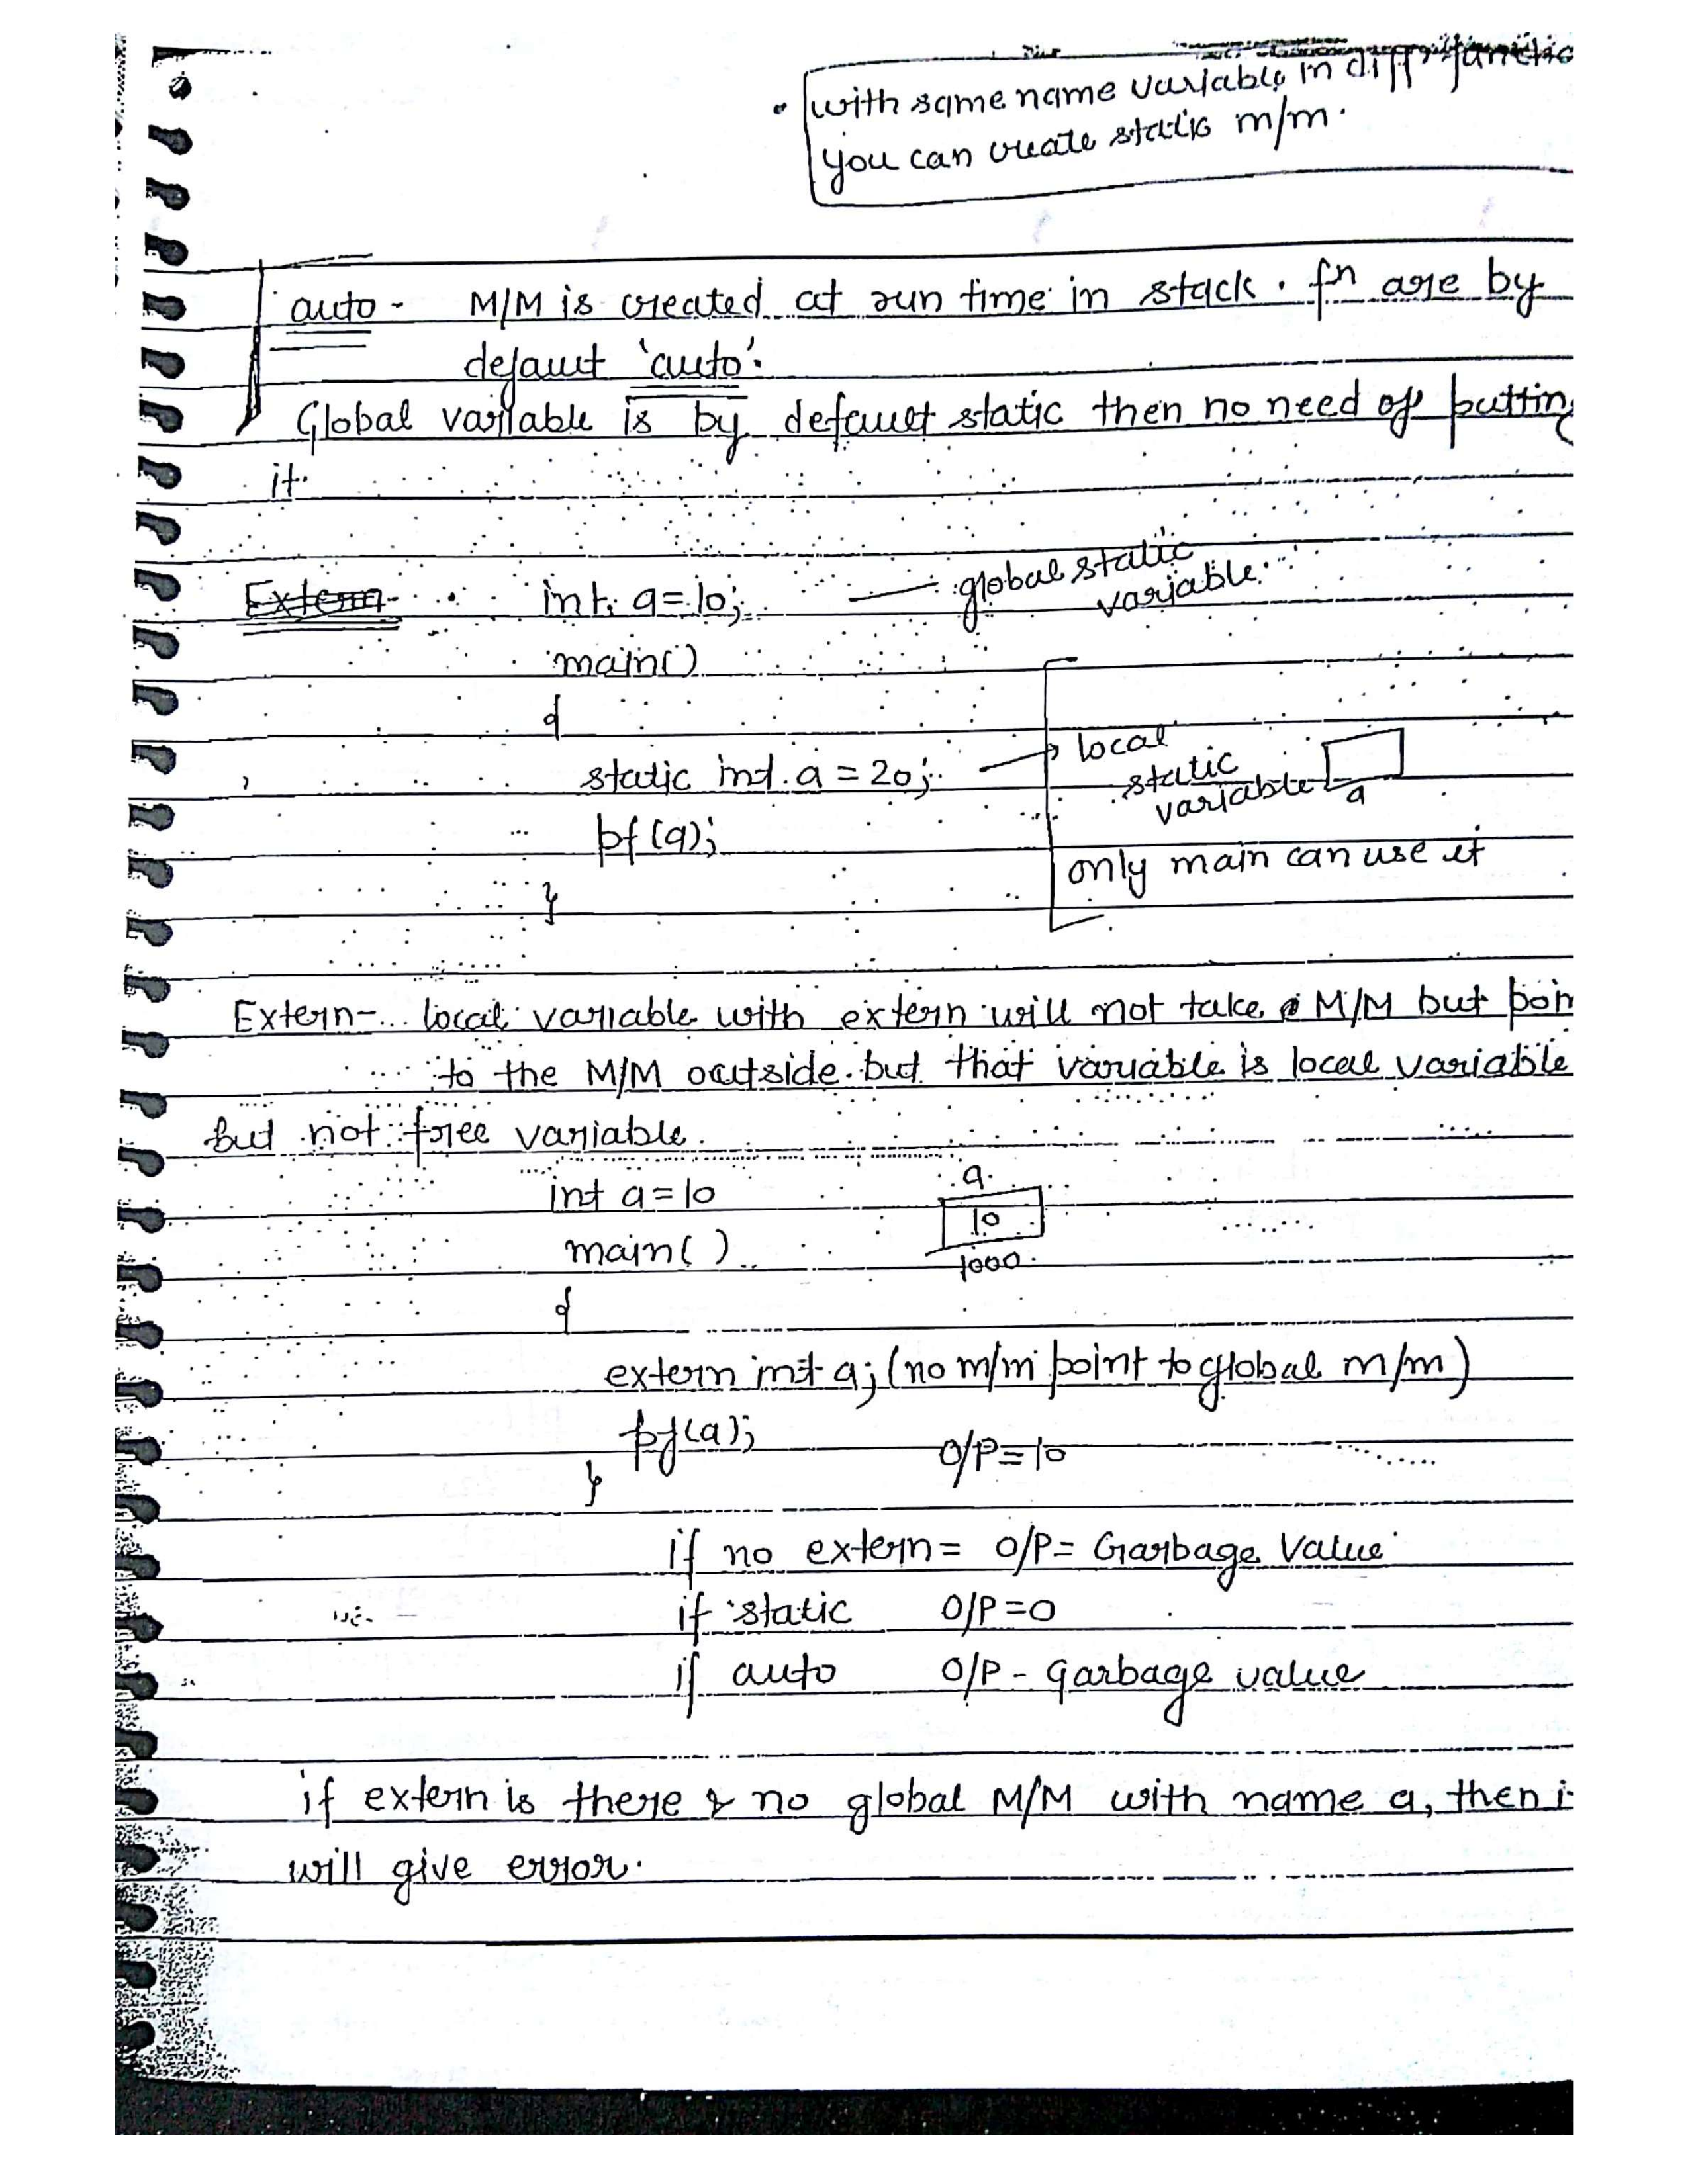 with same name variable in diff functio
you can create static m/m.
auto - M/M is created at run time in stack. fn are by
defaut 'auto'.
Global variable is by default static then no need of puttin
it.
Extern int a=10; — global static
variable.
main()
{
static int a = 20; → local
static
variable a
pf(a);
only main can use it
}
Extern- local variable with extern will not take M/M but poin
to the M/M outside but that variable is local variable
but not free variable.
int a=10 a
10
main() 1000
{
extern int a; (no m/m point to global m/m)
pf(a); O/P=10
}
if no extern = O/P= Garbage Value
if static O/P=0
if auto O/P - garbage value
if extern is there & no global M/M with name a, then i
will give error.